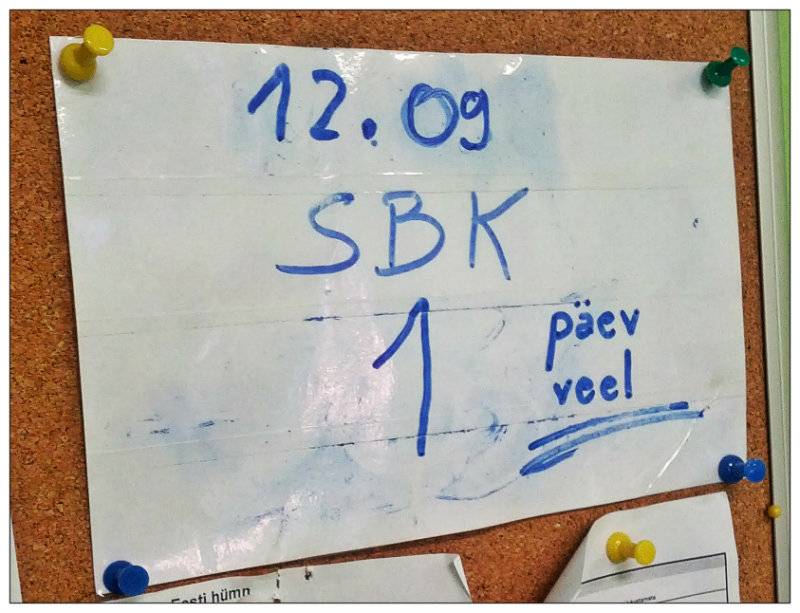 12.09
SBK
1
päev
veel
Eesti hümn